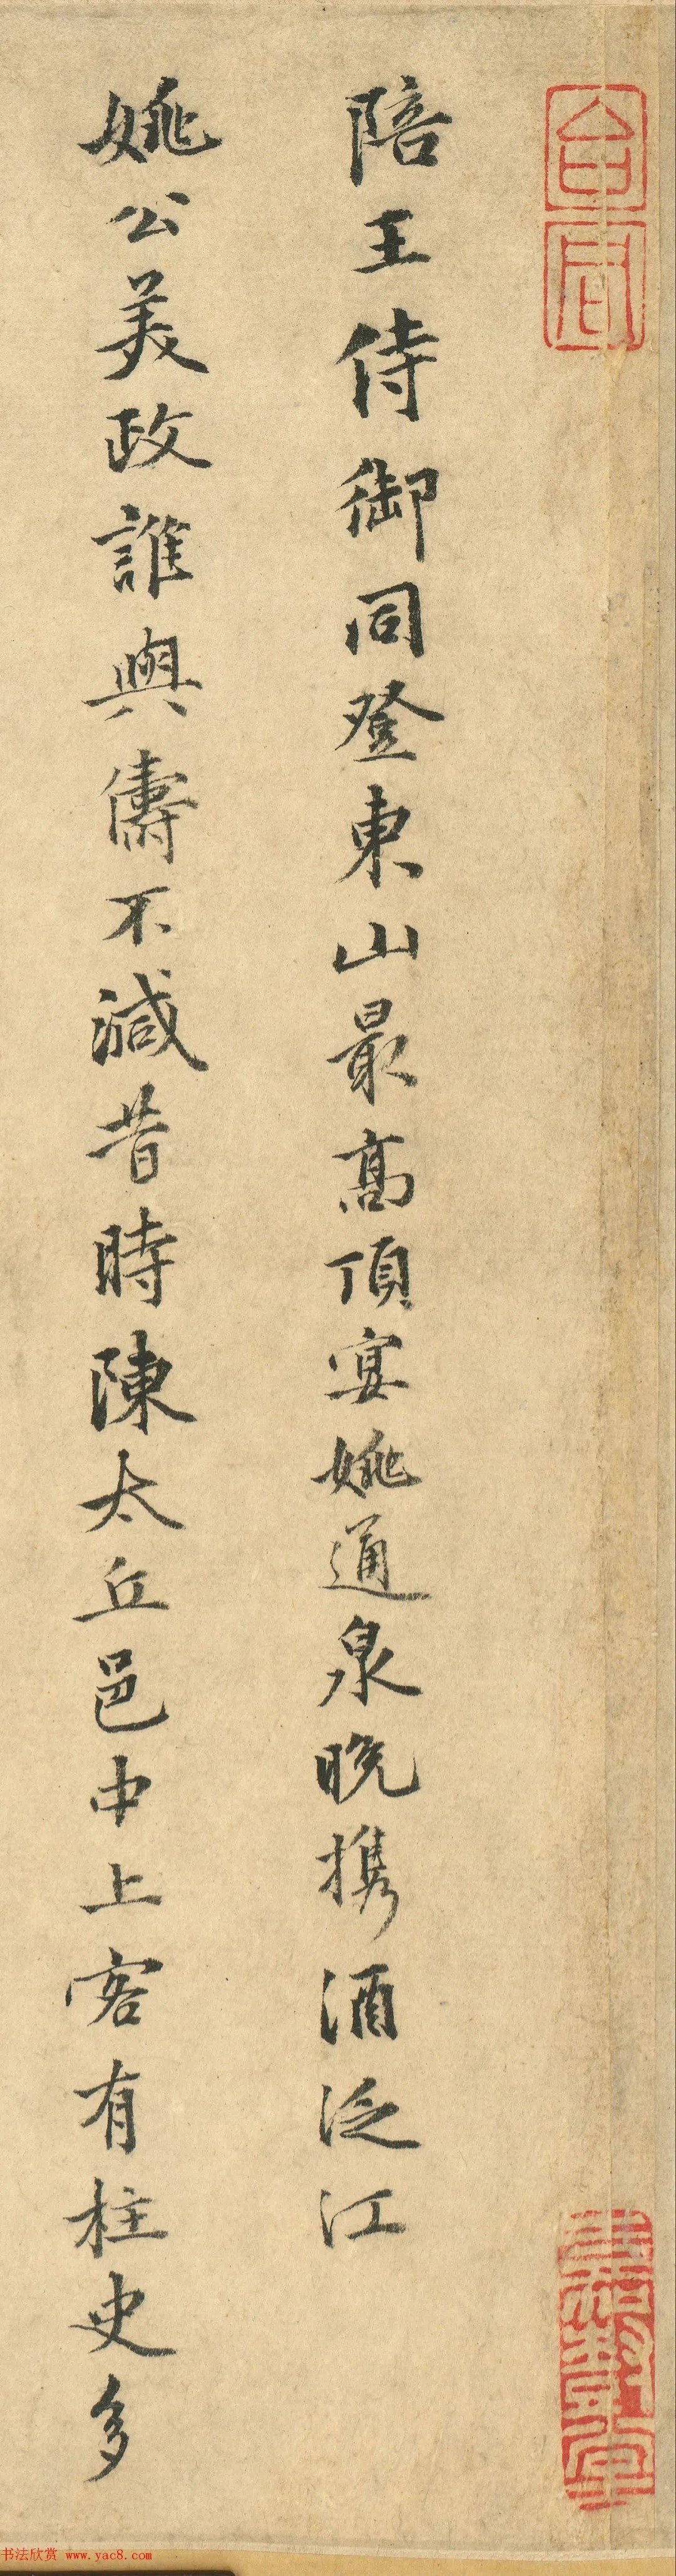 陪王侍御同登東山最高頂宴姚通泉晚携酒泛江
姚公美政誰與儔不減昔時陳太丘邑中上客有柱史多
书法欣赏 www.yac8.com